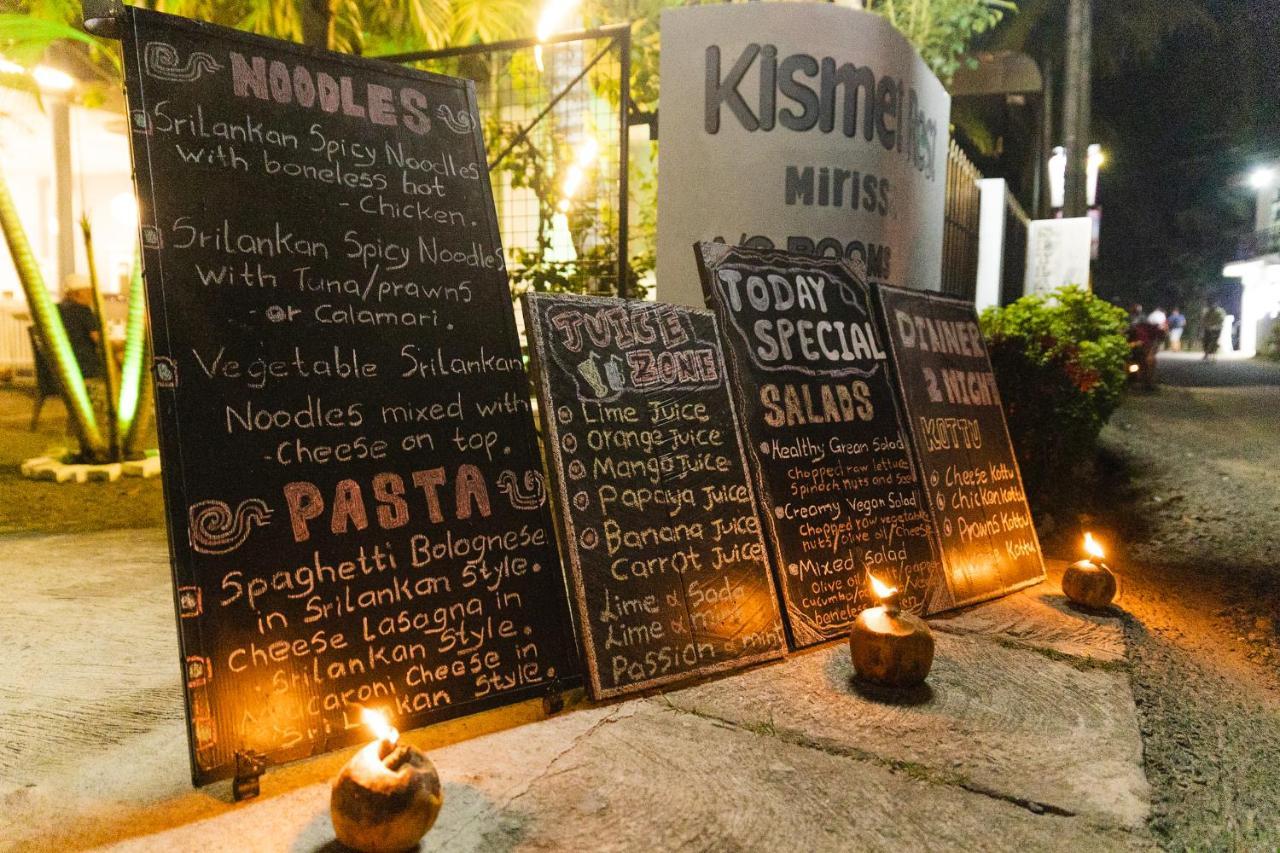 NOODLES
SriLankan Spicy Noodles
with boneless hot
- Chicken.
SriLankan Spicy Noodles
with Tuna/prawns
- or Calamari.
Vegetable SriLankan
Noodles mixed with
- Cheese on top.
PASTA
Spaghetti Bolognese
in Srilankan Style.
Cheese Lasagna in
- Srilankan Style.
Macaroni Cheese in
Srilankan Style.
JUICE
ZONE
Lime Juice
Orange Juice
Mango Juice
Papaya Juice
Banana Juice
Carrot Juice
Lime & Soda
Lime & mint
Passion & mint
Kismet Rest
Miriss
A/C ROOMS
TODAY
SPECIAL
SALADS
Healthy Green Salad
Chopped raw lettuce
Spinach nuts and
Creamy Vegan Salad
Chopped raw vegetable
nuts/olive oil/cheese
Mixed Salad
Olive oil
boneless
DINNER
2 NIGHT
KOTTU
Cheese Kottu
Chicken Kottu
Prawns Kottu
Kottu